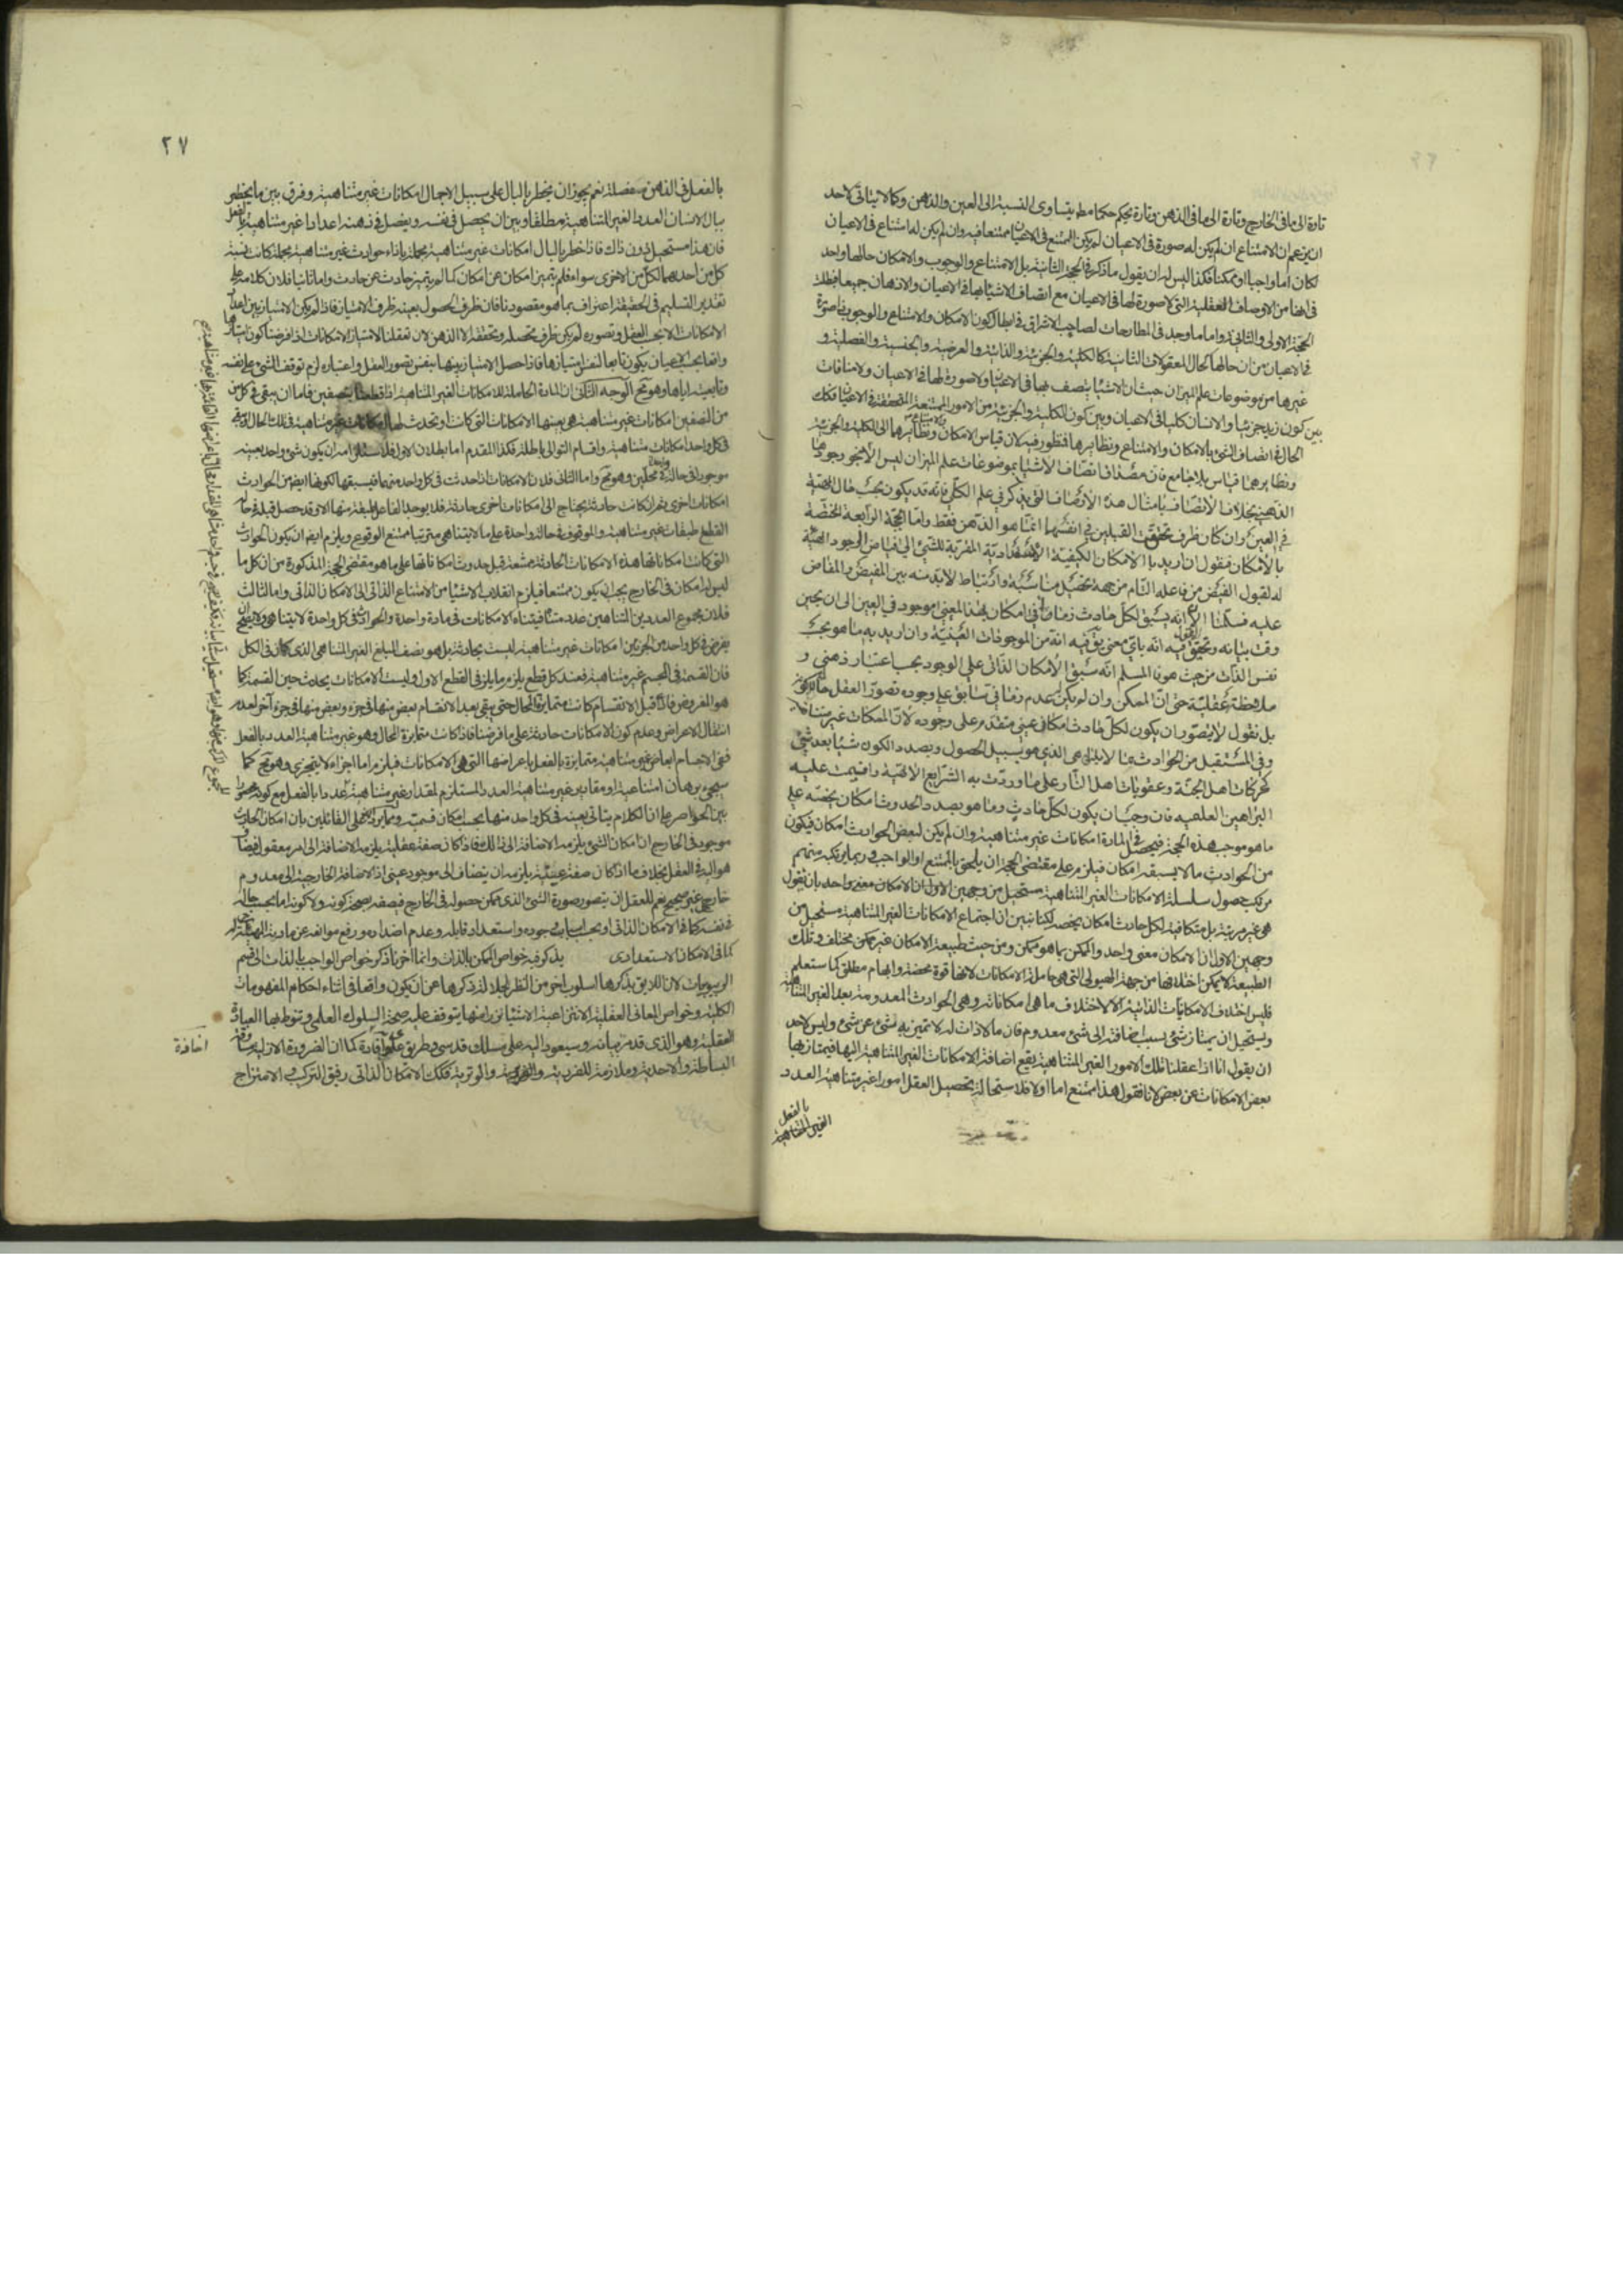 تارة الى ما فى الخارج وتارة الى ما فى الذهن وتارة يحكم حكما مط بتساوى النسبة الى العين والذهن وكما لا يتاتى لاحد
ان يزعم ان الامتناع ان لم يكن له صورة فى الاعيان لم يكن الممتنع فى الاعيان ممتنعا فيه وان لم يكن له امتناع فى الاعيان
لكان اما واجبا او ممكنا فكذا ليس له ان يقول ما ذكر فى الحجة الثانية بل الامتناع والوجوب والامكان حالها واحد
فى انها من الاوصاف العقلية التى لا صورة لها فى الاعيان مع اتصاف الاشياء بها فى الاعيان والاذهان جميعا فبطلت
الحجة الاولى والثانية واما ما وجد فى المطارحات لصاحب الاشراق فى ابطال كون الامكان والامتناع والوجوب ذا صورة
فى الاعيان من ان حالها كحال المعقولات الثانية كالكلية والجزئية والذاتية والعرضية والجنسية والفصلية و
غيرها من موضوعات علم الميزان حيث ان الاشياء يتصف بها فى الاعيان ولا صورة لها فى الاعيان ولا منافات
بين كون زيد جزئيا والانسان كليا فى الاعيان وبين كون الكلية والجزئية من الامور الممتنعة التحقق فى الاعيان فكك
الحال فى اتصاف الشئ بالامكان والامتناع ونظايرها فمنظور فيه لان قياس الامكان والامتناع ونظايرهما الى الكلية والجزئية
ونظايرهما قياس بلا جامع فان مصداق اتصاف الاشياء بموضوعات علم الميزان ليس الا نحو وجودها
الذهنى بخلاف الاتصاف بامثال هذه الاوصاف التى يذكر فى علم الكلى فانه قد يكون بحسب حال الماهية
فى العين وان كان ظرف تحقق القبيلين فى انفسهما انما هو الذهن فقط واما الحجة الرابعة المختصة
بالامكان فنقول ان اريد بالامكان الكيفية الاستعدادية المقربة للشئ الى فياض الوجود المهيئة
له لقبول الفيض من فاعله التام من جهة تحصيل مناسبة وارتباط لا بد منه بين المفيض والمفاض
عليه فسلمنا الان انه يسبق لكل حادث زمانى امكان بهذا المعنى موجود فى العين الى ان يحين
وقت بيانه وتحقق القول فيه انه باى معنى يق فيه انه من الموجودات العينية وان اريد به ما هو بحسب
نفس الذات من حيث هو فالمسلم انه سبق الامكان الذاتى على الوجود بحسب اعتبار ذهنى و
ملاحظة عقلية حتى ان الممكن وان لم يكن له عدم زمانى سابق على وجوده تصور العقل
بل نقول لا يتصور ان يكون لكل حادث امكانى عينى متقدم على وجوده لان الممكنات غير متناهية
وفى المستقبل من الحوادث ما لا يتناهى الذى هو بسبيل الحصول وبصدد الكون شيئا بعد شئ
كحركات اهل الجنة وعقوبات اهل النار على ما وردت به الشرايع الالهية واقيمت عليه
البراهين العلمية فان وجب ان يكون لكل حادث وما هو بصدد الحدوث امكان يخصه على
ما هو موجب هذه الحجة فيحصل فى المادة امكانات غير متناهية وان لم يكن لبعض الحوادث امكان فيكون
من الحوادث ما لا يسبقه امكان فيلزم على مقتضى الحجة ان يلحق بالممتنع او الواجب وربما يرتكب منهم
مرتكب حصول سلسلة الامكانات الغير المتناهية مستحيل من وجهين الاول ان الامكان معنى واحد بان نقول
هى غير مرتبة بل متكافية لكل حادث امكان يخصه لكنا نبين ان اجتماع الامكانات الغير المتناهية مستحيل من
وجهين الاول ان الامكان معنى واحد والممكن بما هو ممكن ومن حيث طبيعة الامكان غير ممكن مختلف وتلك
الطبيعة لا يمكن اختلافها من جهة الهيولى التى هى حاملة الامكانات لانها قوة محضة وابهام مطلق كما ستعلم
فليس اختلاف الامكانات الذاتية الا لاختلاف ما هى امكاناته وهى الحوادث المعدومة بعد الغير المتناهية
ويستحيل ان يمتاز شئ بسبب اضافته الى شئ معدوم فان ما لا ذات له لا يتميز به شئ عن شئ وليس لاحد
ان يقول انا اذا عقلنا تلك الامور الغير المتناهية يقع اضافة الامكانات الغير المتناهية اليها فيمتاز بها
بعض الامكانات عن بعض لانا نقول هذا ممتنع اما اولا فلاستحالة تحصيل العقل امورا غير متناهية العدد
بالفعل
الغير المتناهية
٢٧
بالفعل فى الذهن مفصلة نعم يجوز ان يخطر بالبال على سبيل الاجمال امكانات غير متناهية وفرق بين ما يخطر
ببال الانسان العدد الغير المتناهية مطلقا وبين ان يحصل فى نفسه ويفصل فى ذهنه اعدادا غير متناهية بالفعل
فان هذا مستحيل دون ذاك فاذا خطر بالبال امكانات غير متناهية مجملة بازاء حوادث غير متناهية مجملة كانت نسبة
كل من احديهما لكل من الاخرى سواء فلم يتميز امكان عن امكان كما لم يتميز حادث عن حادث واما ثانيا فلان كلامنا على
تقدير التسليم فى الحقيقة اعتراف بما هو مقصودنا فان ظرف الحصول بعينه ظرف الامتياز فاذا لم يكن الامتياز بين اعداد
الامكانات الا بحسب العقل وتصوره لم يكن ظرف تحصله وتحققه الا الذهن لان تعقلنا لامتياز الامكانات اذا فرضنا كون امتيازها
واقعا بحسب الاعيان يكون تابعا لنفس امتيازها فاذا حصل الامتياز بينها بنفس تصور العقل واعتباره لزم توقف الشئ على نفسه
وتابعيته اياها وهو مح الوجه الثانى ان المادة الحاملة للامكانات الغير المتناهية اذا قطعناها بنصفين فاما ان يبقى فى كل من
من النصفين امكانات غير متناهية هى بعينها الامكانات التى كانت او تحدث لهما امكانات غير متناهية فى تلك الحال او يبقى
فى كل واحد امكانات متناهية واقسام التوالى باطلة فكذا المقدم اما بطلان الاول فلاستلزامه ان يكون شئ واحد بعينه
موجودا فى حالة واحدة فى محلين وهو مح واما الثانى فلان الامكانات اذا حدثت فى كل واحد منهما فيسبقها لكونها ايضا من الحوادث
امكانات اخرى ثم ان كانت حادثة يحتاج الى امكانات اخرى حادثة فلا يوجد الفاعل طبقة منها الا وقد حصل قبله فى حالة
القطع طبقات غير متناهية والوقوف فى حالة واحدة على ما لا يتناهى مترتبا ممتنع الوقوع ويلزم ايضا ان يكون الحوادث
التى كانت امكاناتها هذه الامكانات الحادثة ممتنعة قبل حدوث امكاناتها على ما هو مقتضى الحجة المذكورة من ان كل ما
ليس له امكان فى الخارج يجب ان يكون ممتنعا فيلزم انقلاب الاشياء من الامتناع الذاتى الى الامكان الذاتى واما الثالث
فلان مجموع العددين المتناهيين عدد متناه فيتناه الامكانات فى مادة واحدة والحوادث فى كل واحدة لا يتناهى ولا يصح ان
يفرض فى كل واحد من الجزئين امكانات غير متناهية ليست بحادثة بل هو نصف المبلغ الغير المتناهى الذى كان فى الكل
فان القسمة فى الجسم غير متناهية فعند كل قطع يلزم ما يلزم فى القطع الاول وليست الامكانات يحدث حين القسمة كما
هو المفروض فاذا قبل الانقسام كانت متمايزة المحال حتى يبقى بعد الانقسام بعض منها فى جزء وبعض منها فى جزء آخر لعدم
انتقال الاعراض وعدم كون الامكانات حادثة على ما فرضنا فاذا كانت متمايزة المحال وهو غير متناهية العدد بالفعل
ففى الاجسام ابعاض غير متناهية متمايزة بالفعل باعراضها التى هى الامكانات فيلزم اما اجزاء لا يتجزى وهو مح كما
سيجئ برهان امتناعه او مقادير غير متناهية العدد المستلزم لمقدار غير متناهية عددا بالفعل مع كونه محصورا
بين الحواصر على ان الكلام يتاتى بعينه فى كل واحد منها بحسب امكان قسمته وما يرد على القائلين بان امكان الحادث
موجود فى الخارج ان امكان الشئ يلزمه الاضافة الى ذلك فاذا كان صفة عقلية يلزمه الاضافة الى امر معقول ايضا و
هو اليه فى العقل بخلاف ما اذا كان صفة عينية يلزمه ان يتضاف الى موجود عينى اذ الاضافة الخارجية الى معدوم
خارجى غير صحيح نعم للعقل ان يتصور صورة الشئ الذى ممكن حصوله فى الخارج فيصفه بصحة كونه ولا كونه اما بحسب حاله
فى نفسه كما فى الامكان الذاتى او بحسب اسباب وجوده واستعداد قابله وعدم اضداده ورفع موانعه عن مادته المهيئة له
كما فى الامكان الاستعدادى يذكر فيه خواص الممكن بالذات وانما اخرنا ذكر خواص الواجب بالذات الى قسم
الربوبيات لان اللايق بذكرها اسلوب اخر من النظر لجلالة ذكرها عن ان يكون واقعا فى اثناء احكام المفهومات
الكلية وخواص المعانى العقلية الانتزاعية الا شيئا نزرا منها يتوقف عليه صحة السلوك العلمى وتنوط بها العبادة
العقلية وهو الذى قد مر بيانه وسيعود اليه على مسلك قدسى وطريق علوى افادة كما ان الضرورة الازلية مساوقة
البساطة والاحدية وملازمة للفردية والوترية فكك الامكان الذاتى رفيق التركيب والامتزاج
افادة